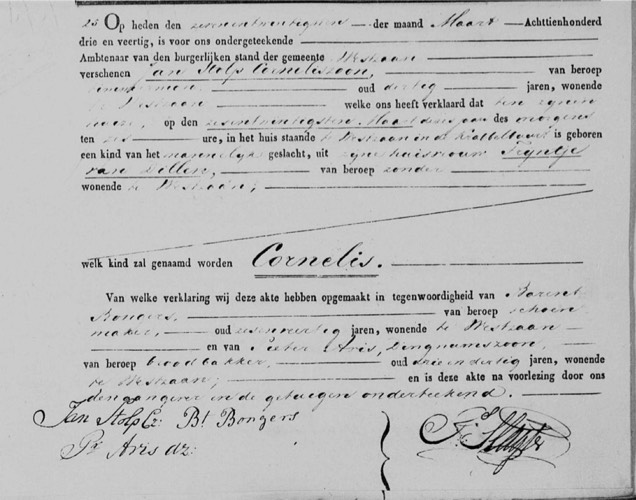 25 Op heden den zevenentwentigsten der maand Maart Achttienhonderd
drie en veertig, is voor ons ondergeteekende
Ambtenaar van den burgerlijken stand der gemeente Westzaan
verschenen Jan Stolp Corneliszoon, van beroep
timmerman oud dertig jaren, wonende
te Westzaan welke ons heeft verklaard dat ten zijnen
huize, op den zesentwentigsten Maart dezes jaars des morgens
ten zes ure, in het huis staande te Westzaan in de is geboren
een kind van het mannelijk geslacht, uit zijne huisvrouw Trijntje
van Zillen, van beroep zonder
wonende te Westzaan;
welk kind zal genaamd worden Cornelis.
Van welke verklaring wij deze akte hebben opgemaakt in tegenwoordigheid van Barend
Bongers, van beroep schoen
maker, oud zesenveertig jaren, wonende te Westzaan
en van Pieter Aris, Dingnumszoon,
van beroep broodbakker, oud drieendertig jaren, wonende
te Westzaan; en is deze akte na voorlezing door ons
den aangever en de getuigen onderteekend.
Jan Stolp Cz: Bt Bongers
Pr Aris dz: